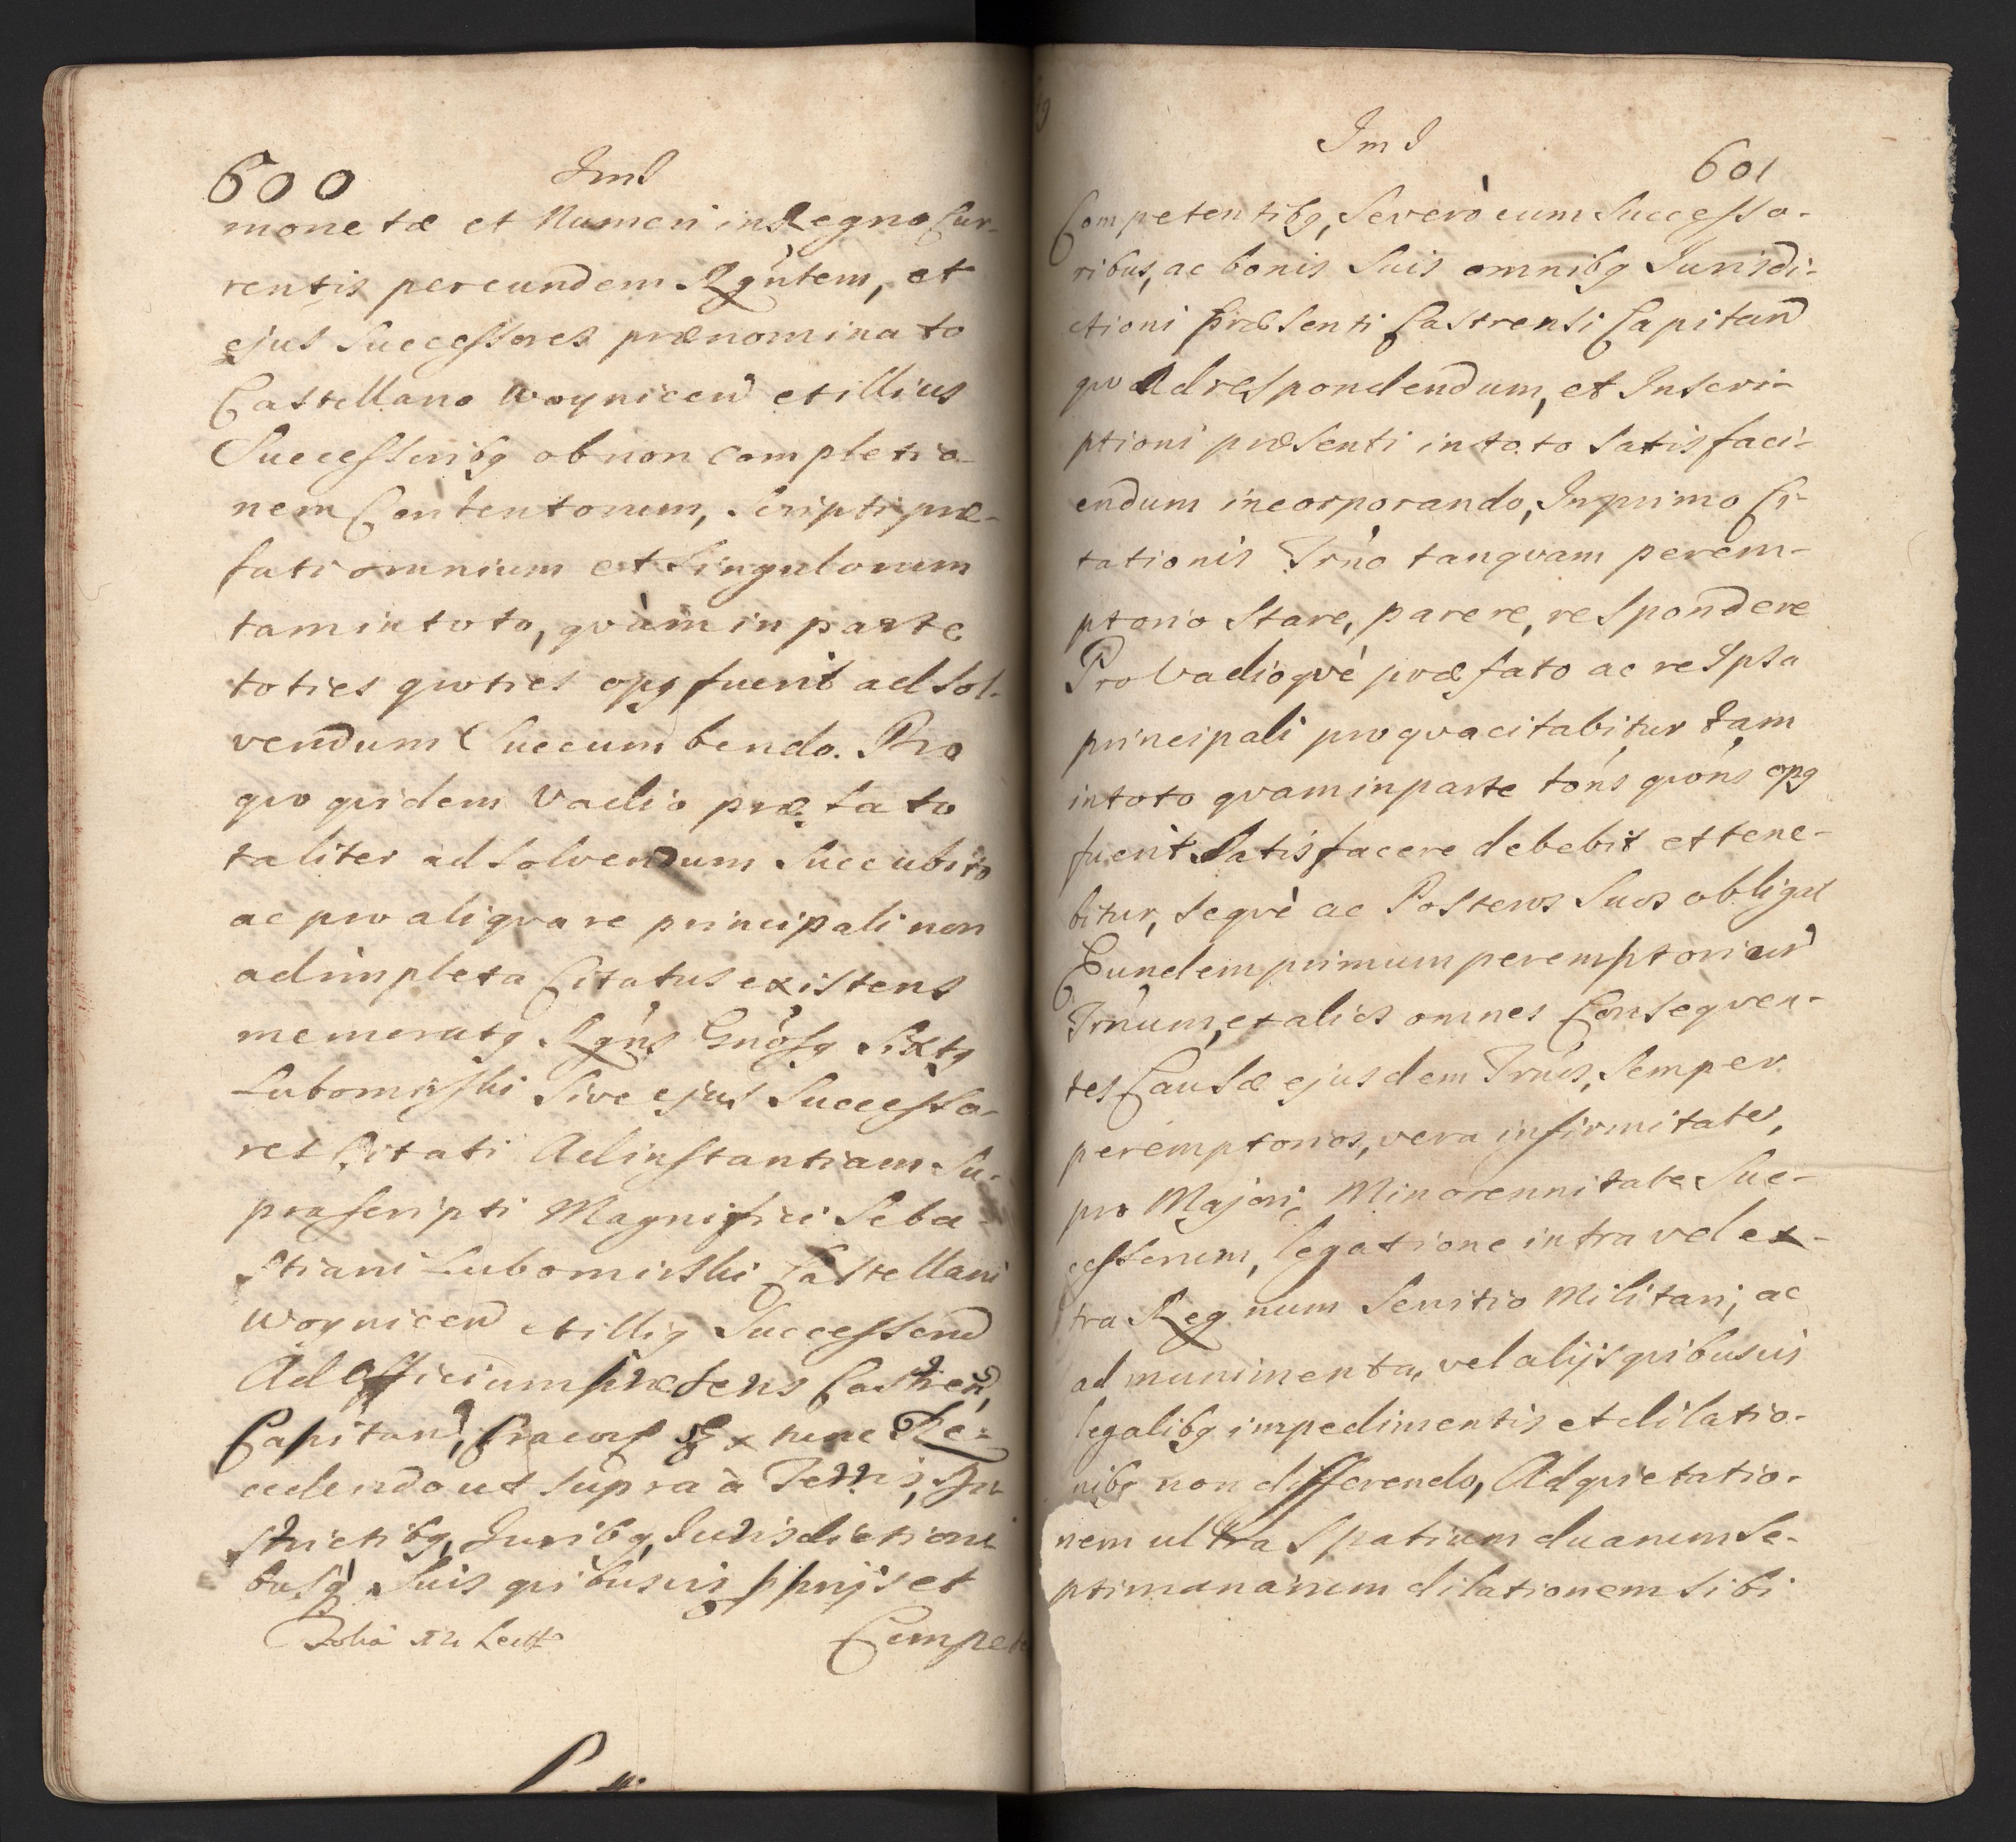 600 ImS
monetæ et Numeri in Regno Cur-
rentis per eundem Rgntem, et
ejus Successores prænominato
Castellano Woynicen et illius
Successoribq ob non completio-
nem Contentorum, Scripti præ-
fati omnium et Singulorum
tam in toto, qvàm in parte
toties qvoties opq fuerit ad Sol-
vendum Succumbendo. Pro
qvo qvidem Vadio præfato
taliter ad Solvendum Succubito
ac pro aliqva re principali non
adimpleta Citatus existens
memoratq Rgns Gnosq Sixtq
Lubomirski Sive ejus Successo-
res Citati Ad instantiam Su-
prascripti Magnifici Seba-
stiani Lubomirski Castellani
Woynicen et illiq Successorū
Ad Officium præsens Castren,
Capitan, Cracov Ex nunc Re-
cedendo ut supra à Terris, Di-
strictibq, Juribq, Jurisdictioni
busq Suis qvibusvis pprijs et
Compete
ImS
601
Competentibq, Severò cum Successo-
ribus, ac bonis Suis omnibq Jurisdi-
ctioni præsenti Castrensi Capitan
qvo Ad respondendum, et Inscri-
ptioni præsenti in toto Satisfaci-
endum incorporando, In primo Ci-
tationis Trno tanqvam perem-
ptorio Stare, parere, respondere
Pro Vadioqvè præfato ac re Ipsa
principali pro qva citabitur tam
in toto qvam in parte tons qvons opq
fuerit Satisfacere debebit et tene-
bitur, Seqvè ac Posteros Suos obligat
Eundem primum peremptorium
Trnum, et alios omnes Conseqven-
tes Causæ ejusdem Trnos, Semper
peremptorios, vera infirmitate,
pro Majori, Minorennitate Suc-
cessorum, legatione intra vel ex-
tra Regnum Servitio Militari, ac
ad munimenta, vel alijs qvibusvis
legalibq impedimentis et dilatio-
nibq non differendo, Ad qvietatio-
nem ultra Spatium duarum Se-
ptimanarum dilationem Sibi